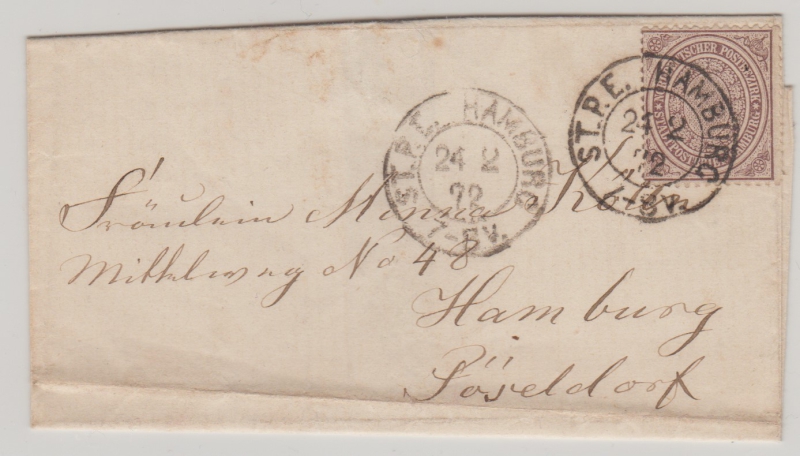 ST.P.E. HAMBURG
24 2
72
7-8V.
ST.P.E. HAMBURG
24 2
72
7-8V.
NORDDEUTSCHER POSTBEZIRK
STADTPOSTBRIEF HAMBURG
Fräulein Minna
Mittelweg No 48
Hamburg
Pöseldorf